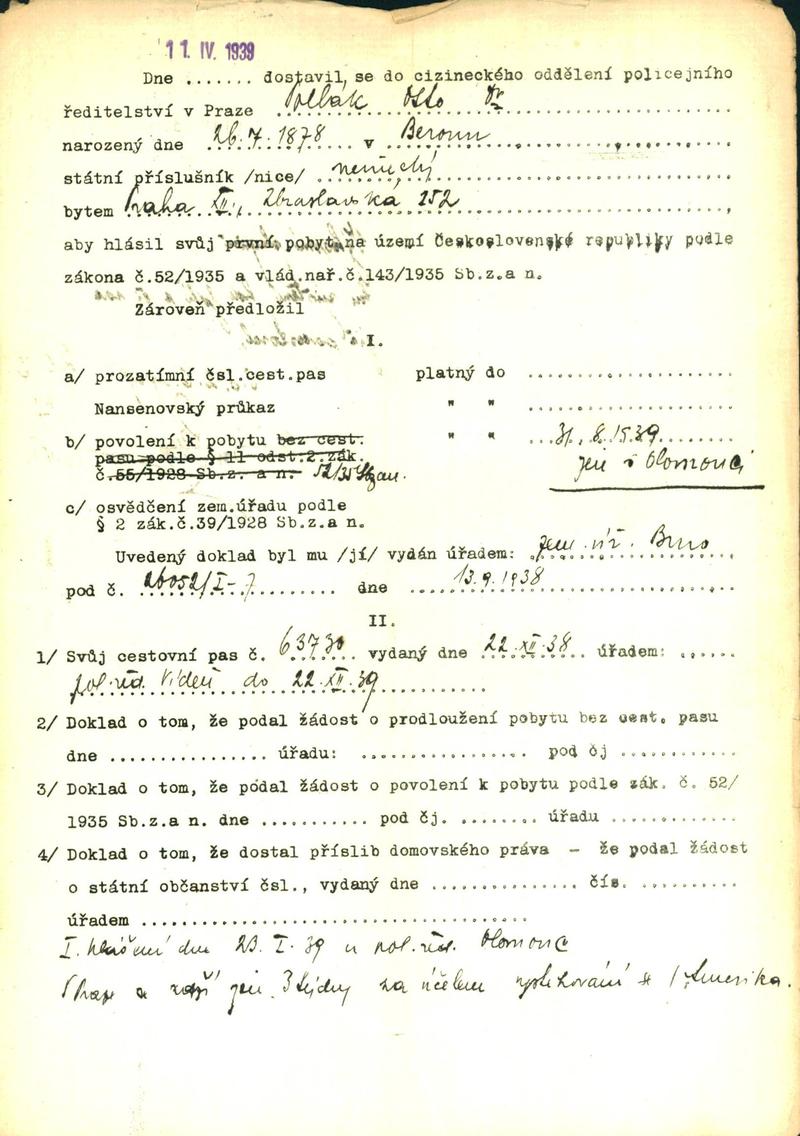 11. IV. 1939
Dne ....... dostavil se do cizineckého oddělení policejního
ředitelství v Praze Pollák Otto Dr
narozený dne 26.7.1878 v Beroun
státní příslušník /nice/ německý
bytem Praha XII., Zbraslavská 252
aby hlásil svůj první pobyt na území Československé republiky podle
zákona č.52/1935 a vlád.nař.č.143/1935 Sb.z.a n.
Zároveň předložil
I.
a/ prozatímní čsl.cest.pas platný do ....................
Nansenovský průkaz " " ....................
b/ povolení k pobytu bez cest. " " 31.8.1539
pasu podle § 11 odst.2 zák. jen v Olomouci
č.55/1928 Sb.z. a n. 52/35
c/ osvědčení zem.úřadu podle
§ 2 zák.č.39/1928 Sb.z.a n.
Uvedený doklad byl mu /jí/ vydán úřadem: zem. úř. Brno
pod č. 26052/I-7 dne 13.9.1938
II.
1/ Svůj cestovní pas č. 63730 vydaný dne 22.XII.38 úřadem: ......
pol. řed. Vídeň do 22.XII.39
2/ Doklad o tom, že podal žádost o prodloužení pobytu bez cest. pasu
dne ................ úřadu: ................. pod čj ............
3/ Doklad o tom, že podal žádost o povolení k pobytu podle zák. č. 52/
1935 Sb.z.a n. dne ........... pod čj. ........ úřadu .............
4/ Doklad o tom, že dostal příslib domovského práva - že podal žádost
o státní občanství čsl., vydaný dne ............... čís. ..........
úřadem ......................................
I. hlášení dne 23.I.39 u pol. řed. Olomouc
jen 3 týdny za účelem vystěhování se Amerika.